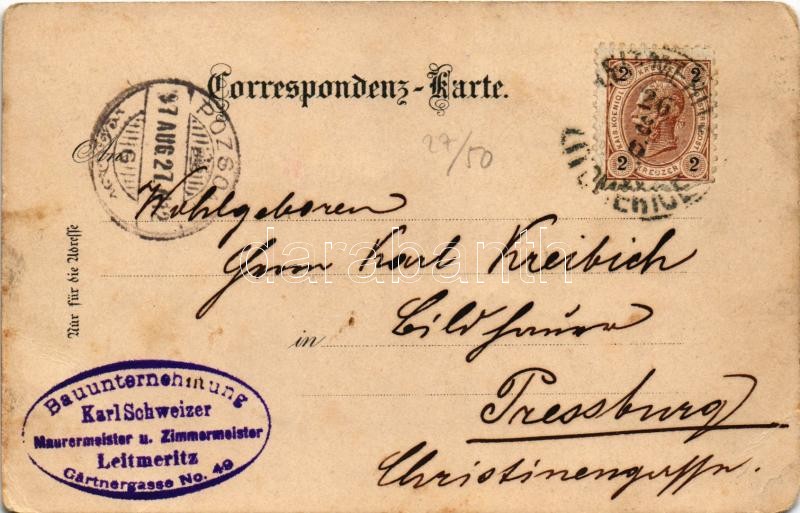 Correspondenz-Karte.
An
27/50
2 2
2 KREUZER 2
26
POZSO
97 AUG 27
Wohlgeboren
Herrn Karl Kreibich
in Bildhauer
Pressburg
Christinengasse.
Nur für die Adresse
Bauunternehmung
Karl Schweizer
Maurermeister u. Zimmermeister
Leitmeritz
Gärtnergasse No. 49
darabanth